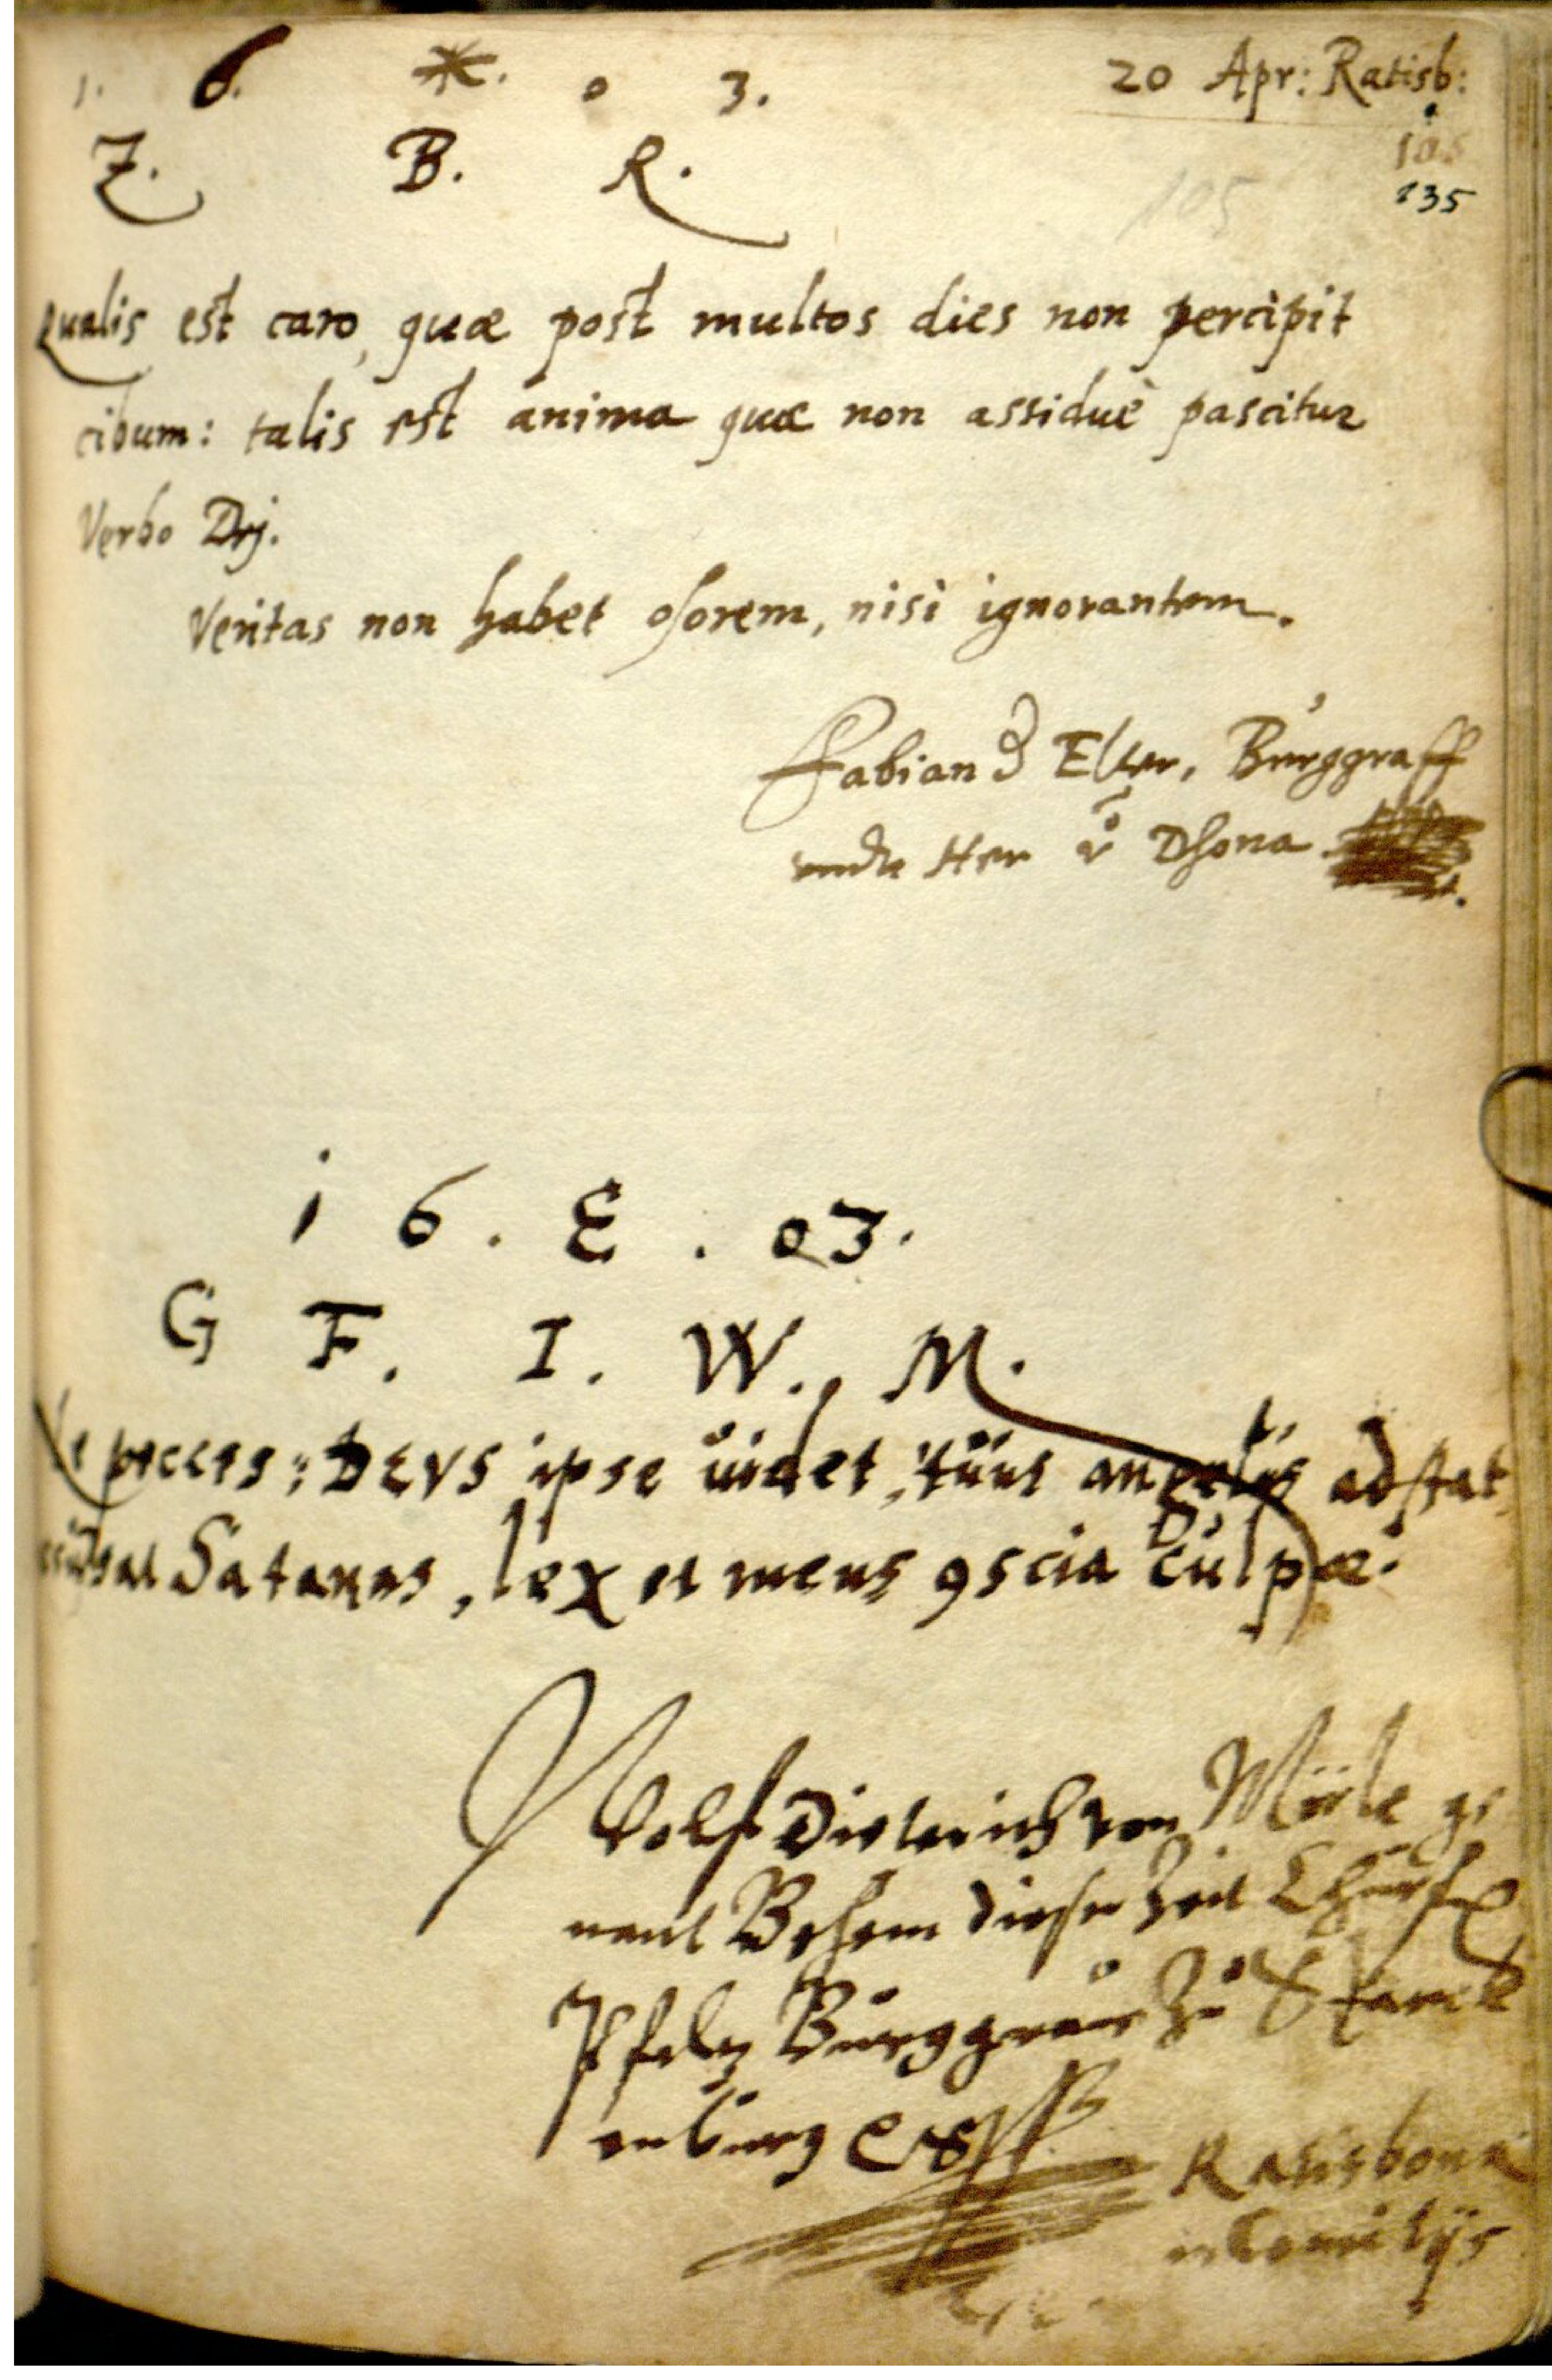 1. 6. *. 0 3. 20 Apr: Ratisb:
Z. B. R.
105
235
Qualis est caro, quæ post multos dies non percipit
cibum: talis est anima quæ non assiduè pascitur
Verbo Dej.
Veritas non habet osorem, nisi ignorantem.
Fabian d Elter, Burggraff
undt Her võ Dhona
1 6 . E . 03.
G F. I. W. M.
Ne pecces: DEVS ipse uidet, tuus angelus adstat,
Satanas, lex et mens 9scia culpæ.
Wolf Dieterich von Mörle ge
nant Behem dieser Zeit Churf
Pfaltz Burggrav Zu Starck
enburg
Ratisbonæ
in Comitijs